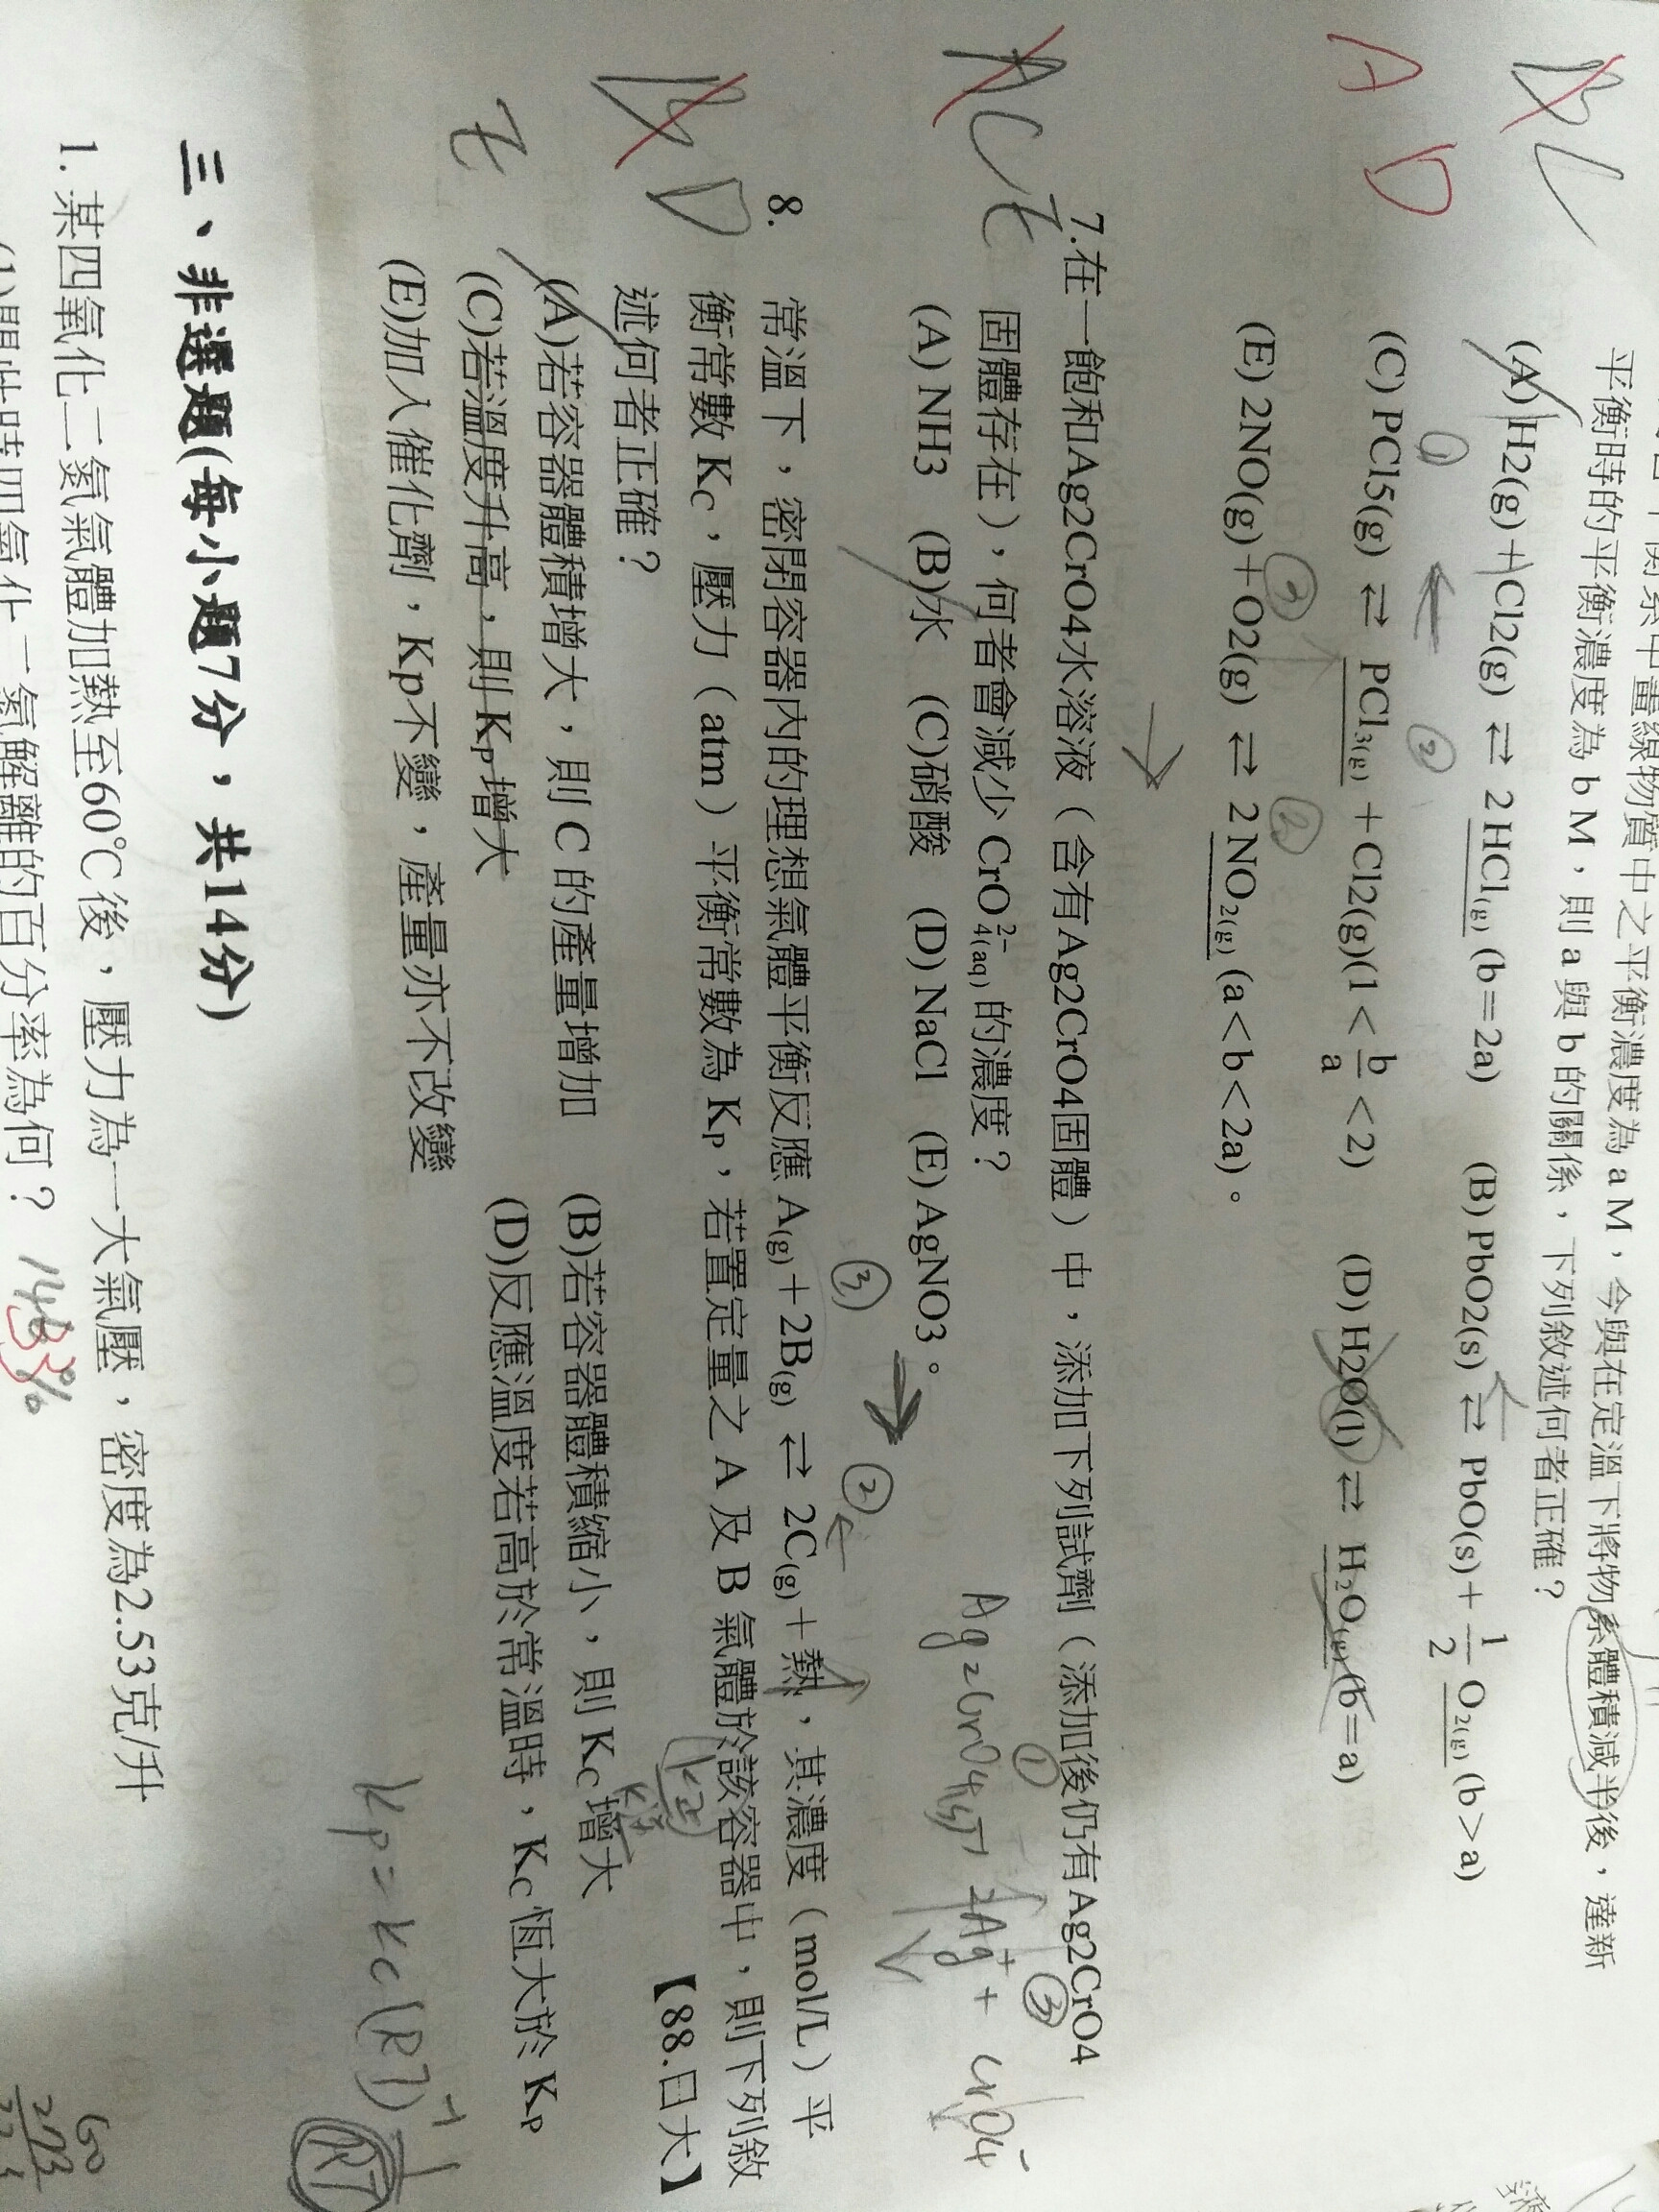 平衡時的平衡濃度為 b M，則 a 與 b 的關係，下列敘述何者正確？
(A) H2(g)+Cl2(g) ⇌ 2 HCl(g) (b＝2a) (B) PbO2(s) ⇌ PbO(s)+1/2 O2(g) (b＞a)
(C) PCl5(g) ⇌ PCl3(g) +Cl2(g)(1＜b/a＜2) (D) H2O(l) ⇌ H2O(g) (b＝a)
(E) 2NO(g)+O2(g) ⇌ 2 NO2(g) (a＜b＜2a)。
A D
7.在一飽和Ag2CrO4水溶液（含有Ag2CrO4固體）中，添加下列試劑（添加後仍有Ag2CrO4
固體存在），何者會減少 CrO4^2-(aq) 的濃度？
(A) NH3 (B)水 (C)硝酸 (D) NaCl (E) AgNO3。
A C E
Ag2CrO4(s) ⇌ 2Ag+ + CrO4-
8. 常溫下，密閉容器內的理想氣體平衡反應 A(g)＋2B(g) ⇌ 2C(g)＋熱，其濃度（mol/L）平
衡常數 KC，壓力（atm）平衡常數為 KP，若置定量之 A 及 B 氣體於該容器中，則下列敘
述何者正確？ 【88.日大】
(A)若容器體積增大，則 C 的產量增加 (B)若容器體積縮小，則 KC 增大
(C)若溫度升高，則 KP 增大 (D)反應溫度若高於常溫時，KC 恆大於 KP
(E)加入催化劑，Kp不變，產量亦不改變
D
E
Kp=Kc(RT)-1
RT
三、非選題(每小題7分，共14分)
1. 某四氧化二氮氣體加熱至60℃後，壓力為一大氣壓，密度為2.53克/升
(1)問此時四氧化二氮解離的百分率為何？